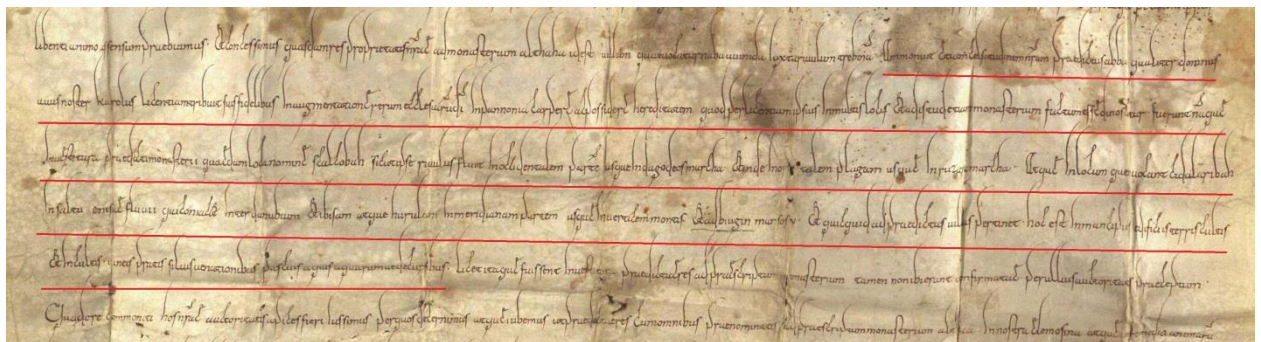 libenti animo assensum praebuimus. Et concessimus quasdam res proprietatis nr̄ae ad monasterium altaha id est quae vocatur nabauuinida iuxta rivulum crebona. Ammonuit etiam celsitudinem nr̄am praedictus abba qualiter domnus
avus noster karolus licentiam tribuit suis fidelibus In augmentatione rerum ecclesiarū dī In pannonia carpere et possidere hereditatem quod per licentiam ipsius In multis locis Et ad istud etiam monasterium factum esse dinoscitur fuerunt nāque
In vestitura praedicti monasterii quaedam loca nomine scalcobah sic ipse rivulus fluit In occidentalem partē usque In dagodeos marcha Et inde plagam usque In ruzaramarcha. Atque In locum qui vocatur cidalaribah
In saltu ensae fluvii qui coniacet inter danubium Et ibisam atque hurulam In meridianam partem usque In montes Et ad biugin Et quicquid ad praedictas pertinet hoc est In mancipiis aedificiis terris cultis
Et incultis vineis pratis silvis venationibus pascuis aquis aquarumve decursibus. Licet itaque fuissent praedictae res ad praescriptum monasterium tamen non habuerunt confirmatae per illius auctoritatis praeceptum
Quapropter hos nr̄ae auctoritatis apices fieri Iussimus per quos decernimus atque iubemus ut praedictae res cum omnibus praenominatis ad praescriptum monasterium altaha In nostra elemosina